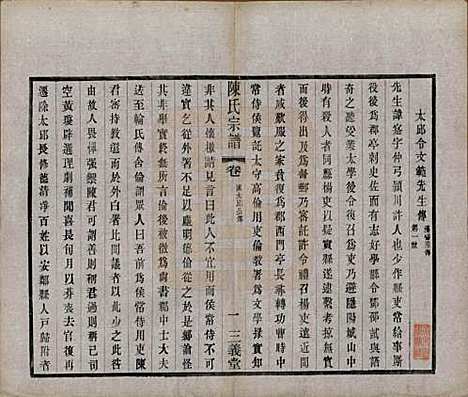 太邱令文範先生傳
第一世
先生諱寔字仲弓潁川許人也少作縣吏常給事厮
役後為郡亭刺史佐而有志好學縣令鄧邵試與語
奇之聽受業太學後令復召為吏乃避隱陽城山中
時有殺人者同縣楊吏以疑寔縣遂逮繫考掠無實
後得出及為督郵乃密託許令禮召楊吏遠近聞
者咸歎服之家貧復為郡西門亭長尋轉功曹時中
常侍侯覽託太守高倫用吏倫教署為文學掾寔知
陳氏宗譜
卷
一
三義堂
非其人懷檄請見言曰此人不宜用而侯常侍不可
違寔乞從外署不足以塵明德倫從之於是鄉論怪
其非舉寔終無所言倫後被徵為尚書郡中士大夫
送至輪氏傳舍倫謂眾人曰吾前為侯常侍用吏陳
君密持教還而於外白署比聞議者以此少之此咎
由故人畏憚強禦陳君可謂善則稱君過則稱己司
空黃瓊辟選理劇補聞喜長旬月以期喪去官復再
遷除太邱長修德清淨百姓以安鄰縣人戶歸附者